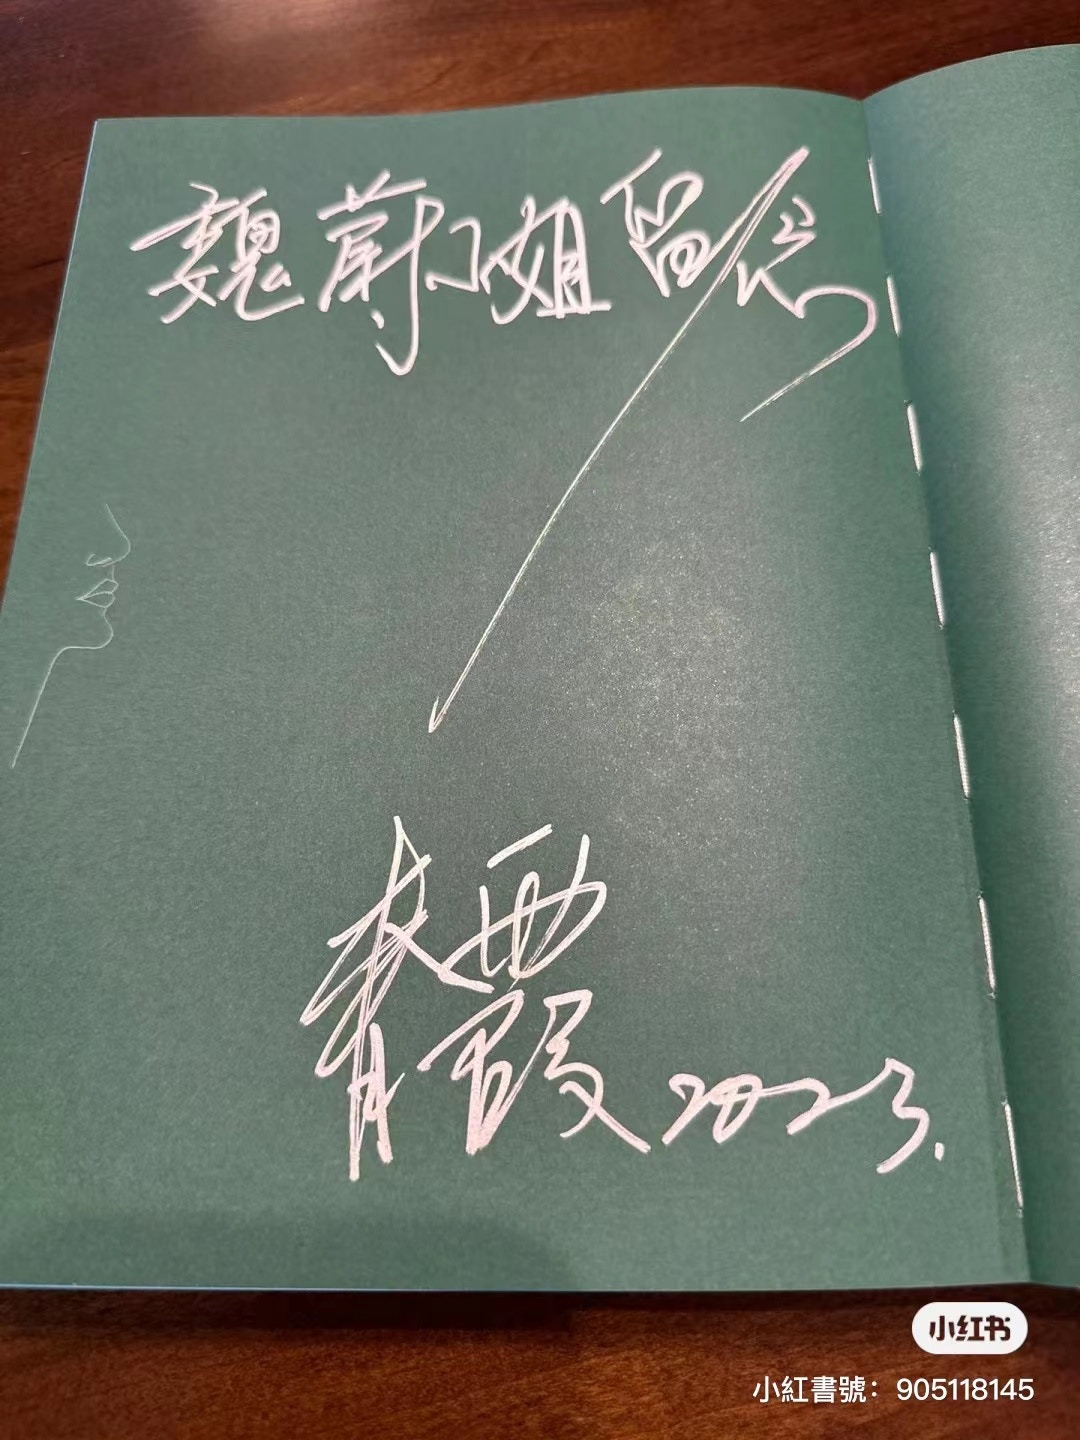 魏蔚小姐留念
青霞 2023.
小红书
小紅書號：905118145